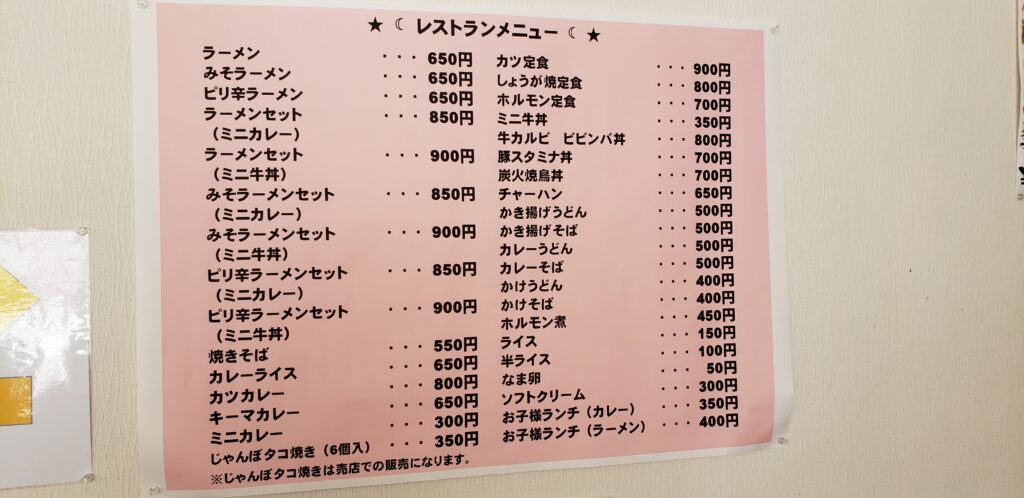 ★ ☾ レストランメニュー ☾ ★
ラーメン ・・・ 650円
みそラーメン ・・・ 650円
ピリ辛ラーメン ・・・ 650円
ラーメンセット ・・・ 850円
（ミニカレー）
ラーメンセット ・・・ 900円
（ミニ牛丼）
みそラーメンセット ・・・ 850円
（ミニカレー）
みそラーメンセット ・・・ 900円
（ミニ牛丼）
ピリ辛ラーメンセット ・・・ 850円
（ミニカレー）
ピリ辛ラーメンセット ・・・ 900円
（ミニ牛丼）
焼きそば ・・・ 550円
カレーライス ・・・ 650円
カツカレー ・・・ 800円
キーマカレー ・・・ 650円
ミニカレー ・・・ 300円
じゃんぼタコ焼き（6個入） ・・・ 350円
※じゃんぼタコ焼きは売店での販売になります。
カツ定食 ・・・ 900円
しょうが焼定食 ・・・ 800円
ホルモン定食 ・・・ 700円
ミニ牛丼 ・・・ 350円
牛カルビ　ビビンバ丼 ・・・ 800円
豚スタミナ丼 ・・・ 700円
炭火焼鳥丼 ・・・ 700円
チャーハン ・・・ 650円
かき揚げうどん ・・・ 500円
かき揚げそば ・・・ 500円
カレーうどん ・・・ 500円
カレーそば ・・・ 500円
かけうどん ・・・ 400円
かけそば ・・・ 400円
ホルモン煮 ・・・ 450円
ライス ・・・ 150円
半ライス ・・・ 100円
なま卵 ・・・ 50円
ソフトクリーム ・・・ 300円
お子様ランチ（カレー） ・・・ 350円
お子様ランチ（ラーメン） ・・・ 400円